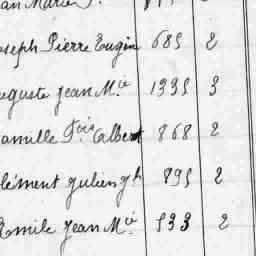 an Marie
oseph Pierre Eugèn 685 2
uguste Jean M.ie 1335 3
amille F.ois Albert 868 2
lément Julien J.h 895 2
Emile Jean M.ie 533 2